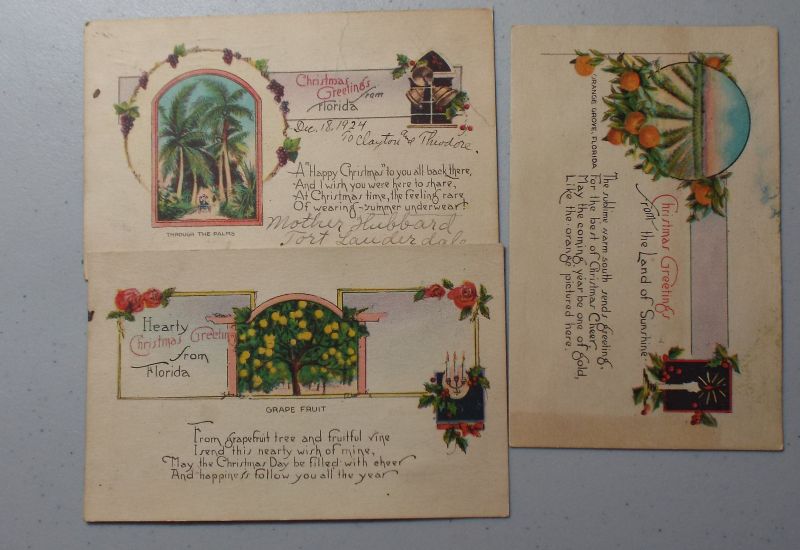 Christmas
Greetings
from
Florida
Dec. 18, 1924
To Clayton & Theodore.
A "Happy Christmas" to you all back there,
And I wish you were here to share,
At Christmas time, the feeling rare
Of wearing - summer underwear!
THROUGH THE PALMS
Mother Hubbard
Fort Lauderdale
Hearty
Christmas Greetings
from
Florida
GRAPE FRUIT
From grapefruit tree and fruitful vine
I send this hearty wish of mine,
May the Christmas Day be filled with cheer
And happiness follow you all the year
ORANGE GROVE, FLORIDA
Christmas Greetings
from the Land of Sunshine
The sublime warm south sends greeting,
For the best of Christmas Cheer,
May the coming year be one of gold,
Like the orange pictured here.